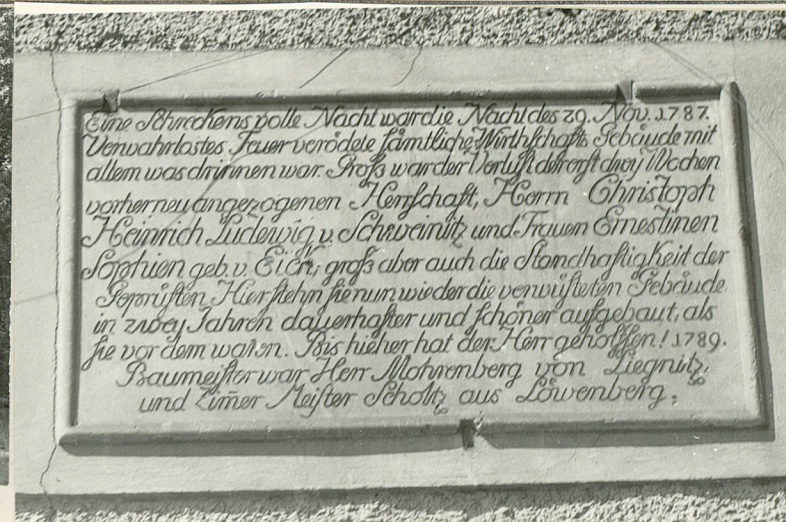 Eine Schreckens volle Nacht war die Nacht des 29. Nov. 1787.
Verwahrlostes Feuer verödete sämtliche Wirthschafts Gebäude mit
allem was drinnen war. Groß war der Verlust der erst drey Wochen
vorher neu angezogenen Herrschaft, Herrn Christoph
Heinrich Ludewig v. Schweinitz und Frauen Ernestinen
Sophien geb. v. Eick; groß aber auch die Standhaftigkeit der
Geprüften. Hier stehn sie nun wieder die verwüsteten Gebäude
in zwey Jahren dauerhafter und schöner aufgebaut, als
sie vor dem waren. Bis hieher hat der Herr geholfen! 1789.
Baumeister war Herr Mohrenberg von Liegnitz,
und Zim̄er Meister Scholtz aus Löwenberg.